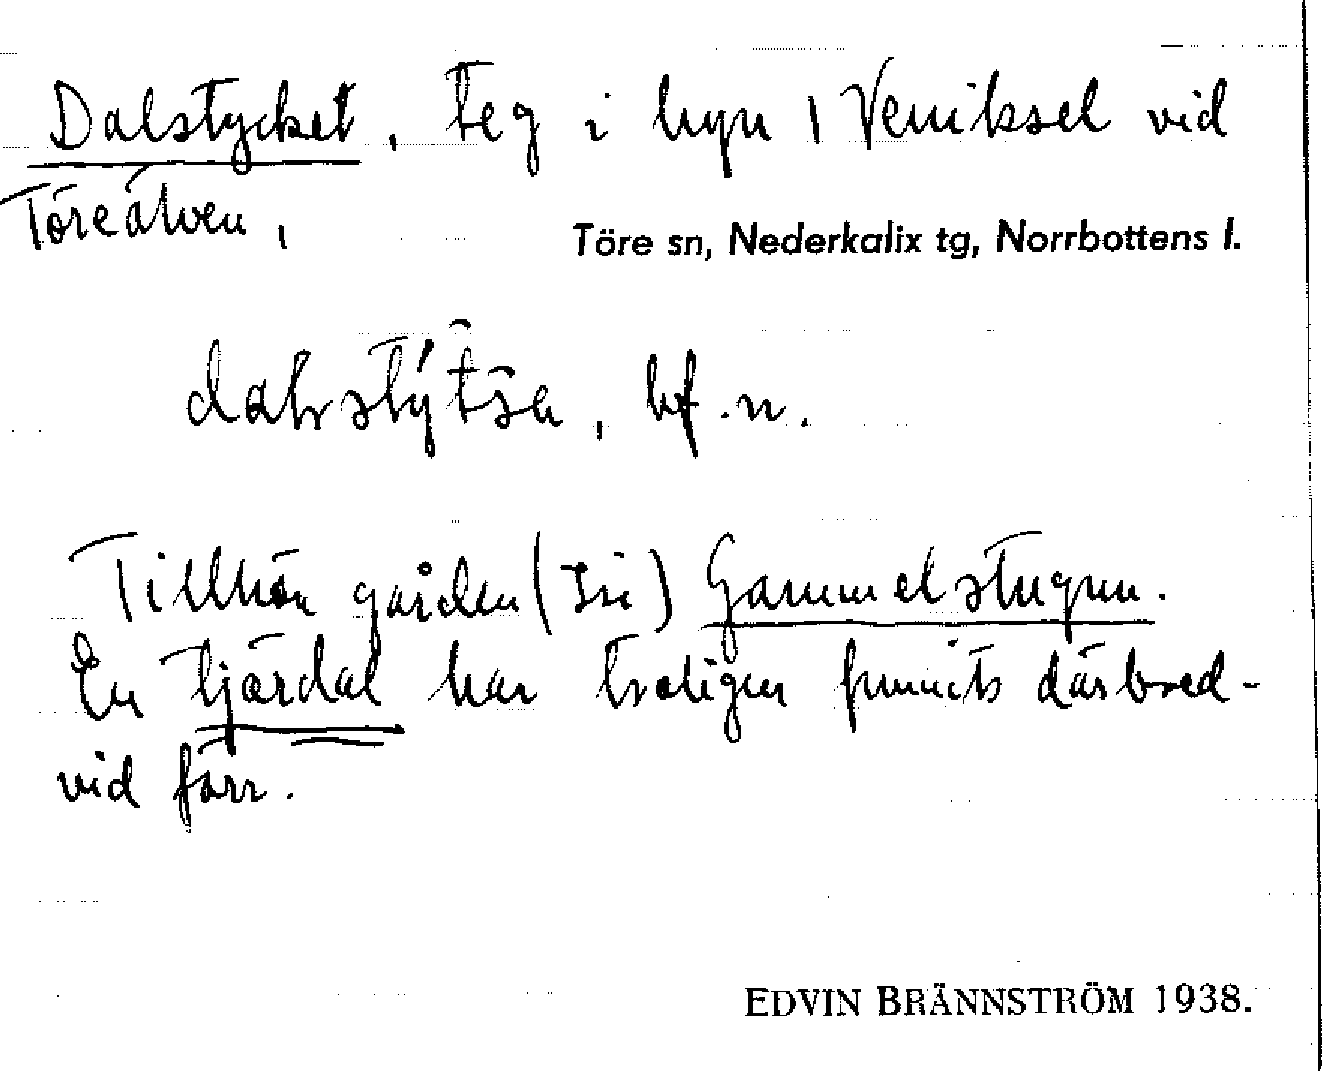 Dalstycket, teg i byn Veniksel vid
Töreälven,
Töre sn, Nederkalix tg, Norrbottens l.
bf.n.
Tillhör gården Gammelstugun.
En tjärdal har troligen funnits därbred-
vid förr.
EDVIN BRÄNNSTRÖM 1938.